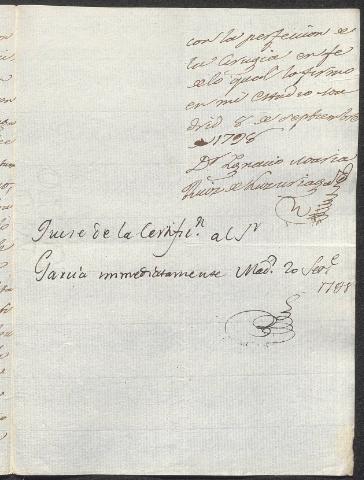 con la perfeccion de
la Cirugia en fe
de lo qual lo firmo
en mi estudio Ma
drid 8 de septiembre
de 1798
Dr Ygnacio Maria
Ruiz de Luzuriaga
de la Certific.n al Sr
Garcia immediatamente Mad.d 20 Set.e
1798